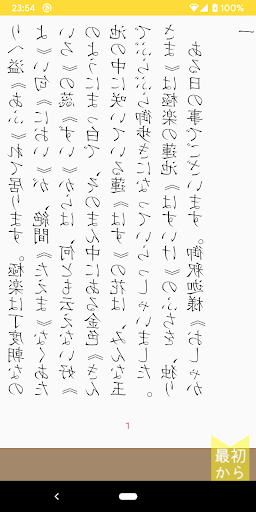 23:54
100%
一
ある日の事でございます。御釈迦様《おしゃか
さま》は極楽の蓮池《はすいけ》のふちを、独り
でぶらぶら御歩きになっていらっしゃいました。
池の中に咲いている蓮《はす》の花は、みんな玉
のようにまっ白で、そのまん中にある金色《きん
いろ》の蕊《ずい》からは、何とも云えない好《
よ》い匂《におい》が、絶間《たえま》なくあた
りへ溢《あふ》れて居ります。極楽は丁度朝なの
1
最初
から